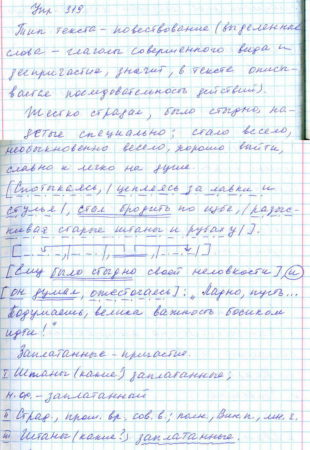 Упр 319
Тип текста - повествование (выделенные
слова - глаголы совершенного вида и
деепричастия, значит, в тексте описы-
вается последовательность действий).
Жестко страдал, было стыдно, на-
детые специально; стало весело,
необыкновенно весело, хорошо выйти,
славно и легко на душе.
[Спотыкаясь, / цепляясь за лавки и
стулья /, стал бродить по избе, / разыс-
кивая старые штаны и рубаху /].
[Ему было стыдно своей неловкости] (и)
[он думал, ожесточаясь]: „Ладно, пусть...
Подумаешь, велика важность босиком
идти!"
Заплатанные - причастие.
I. Штаны (какие?) заплатанные;
н.ф. - заплатанный
II Страд., прош. вр., сов. в.; полн., Вин. п., мн. ч.
III Штаны (какие?) заплатанные.